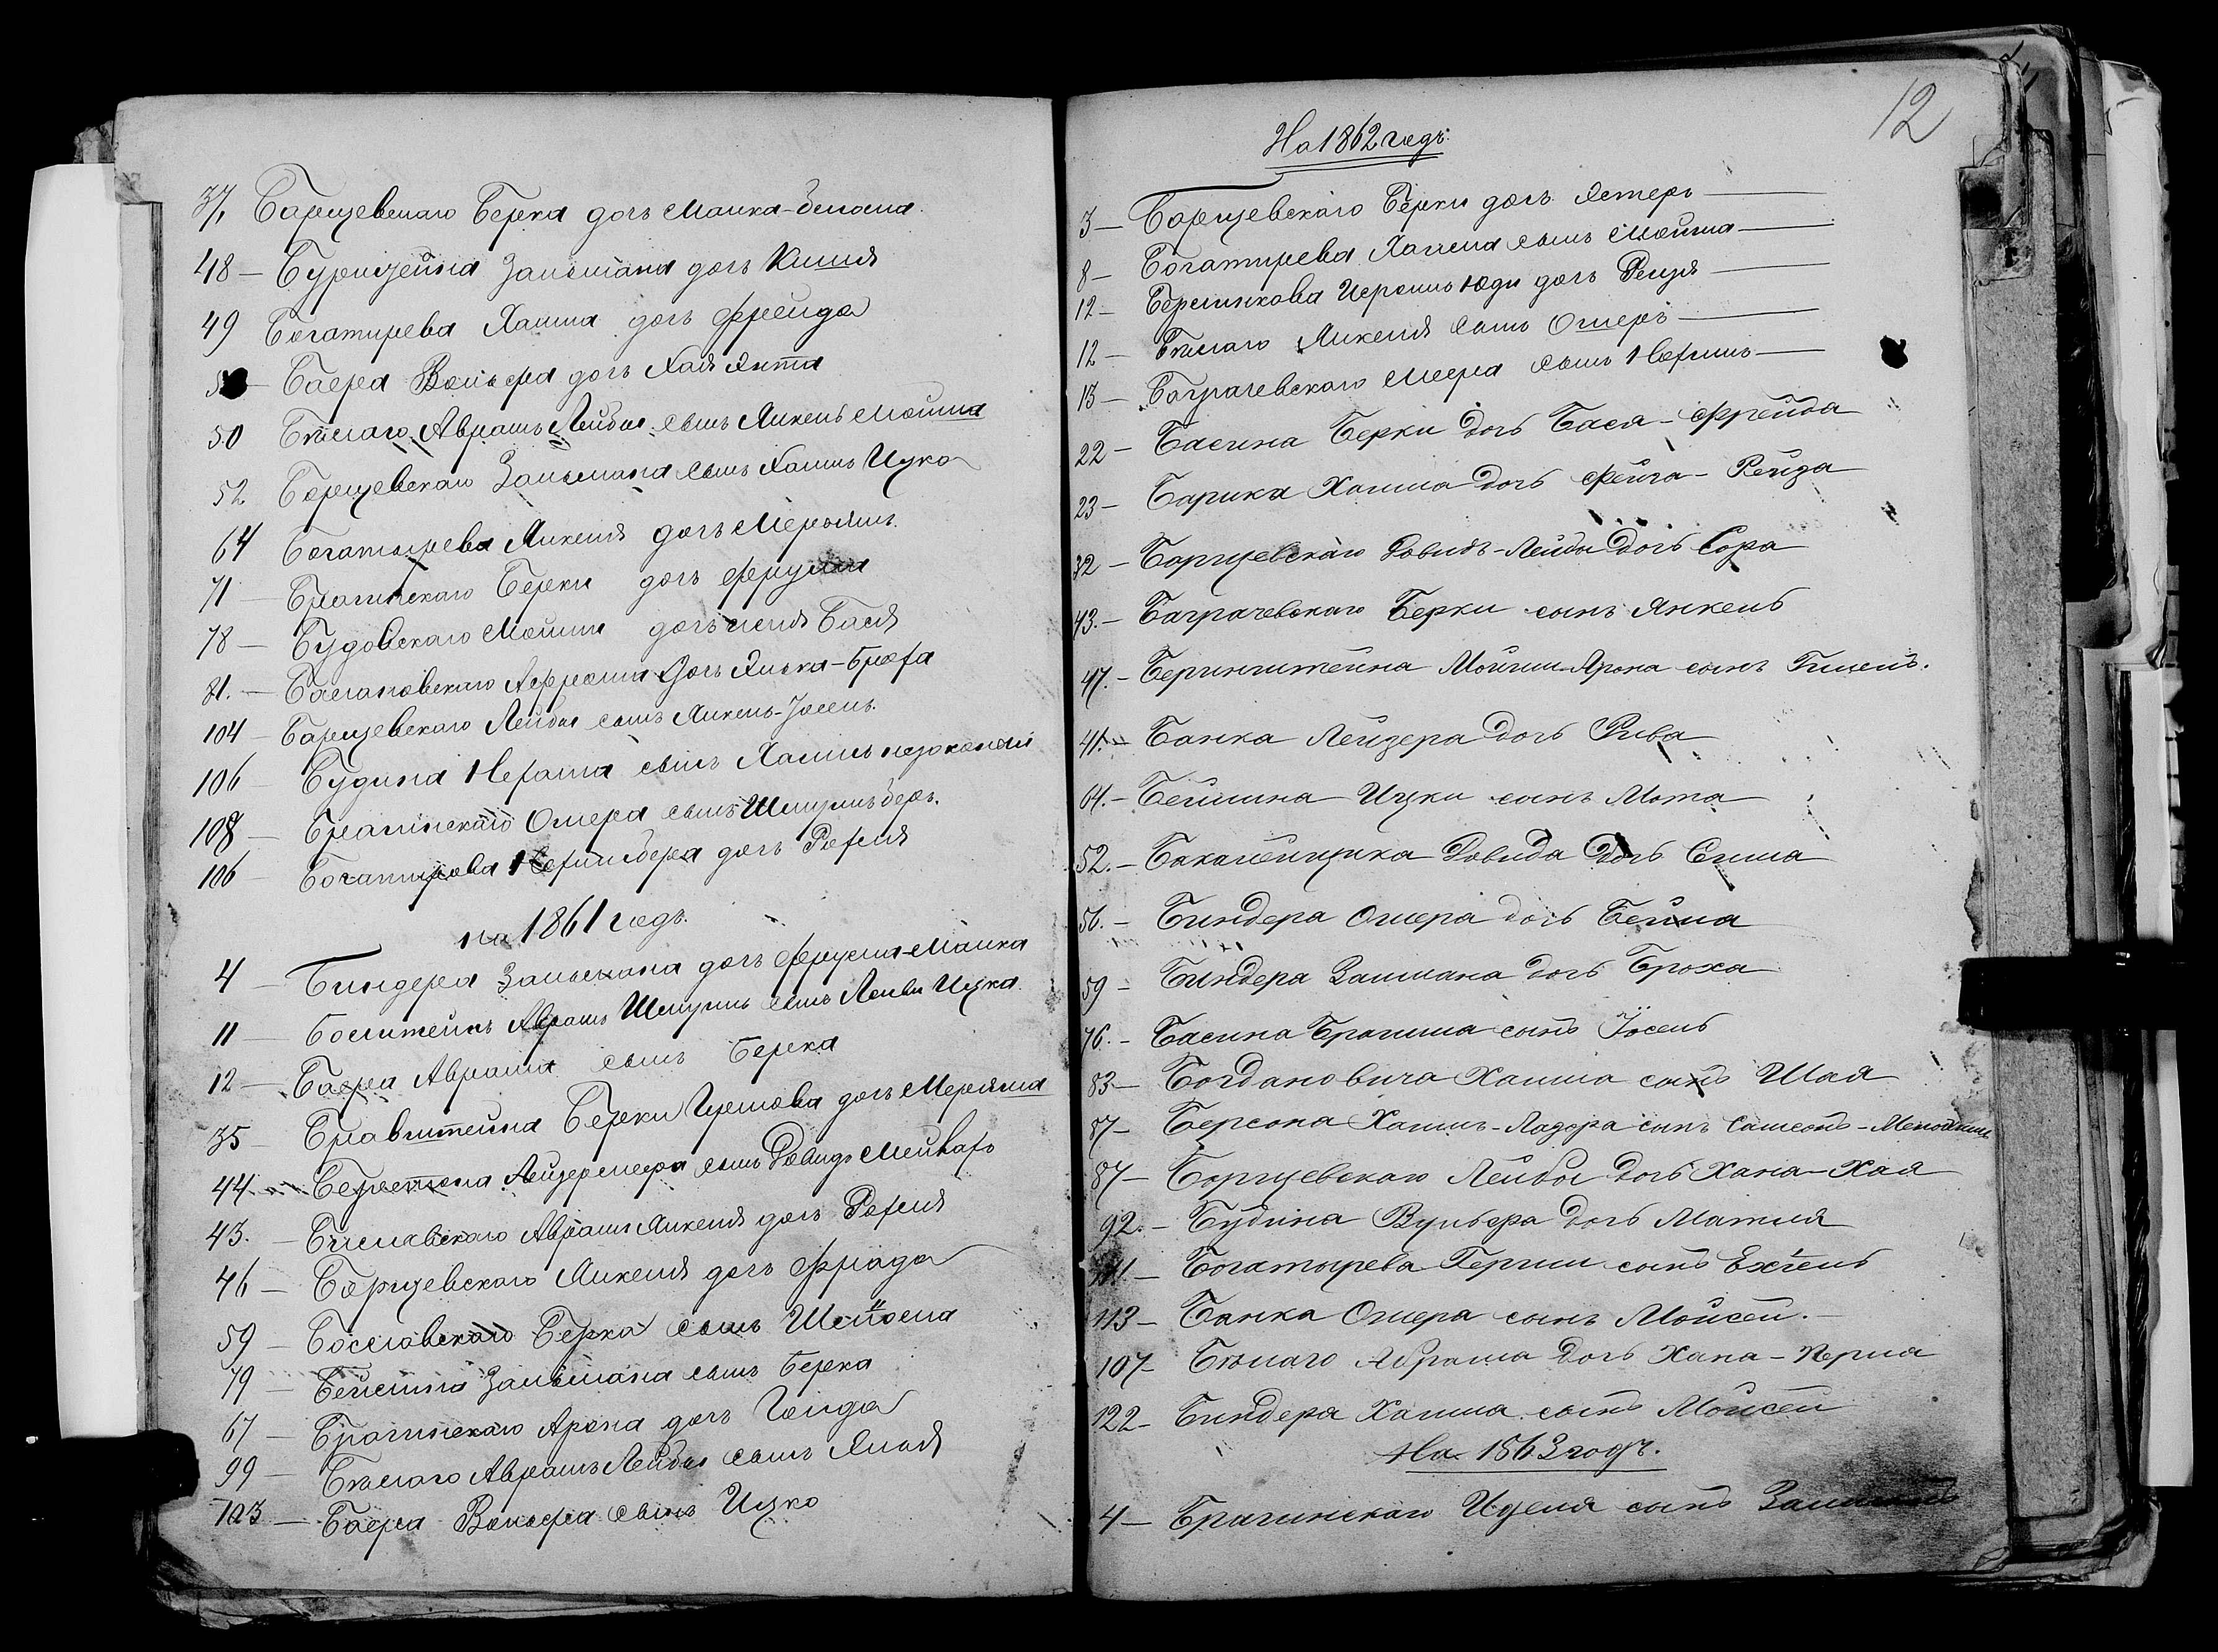 37, Барщевскаго Берка дочь Малка-
48 — Бурштейна Зальмана дочь
49 Богатирева Хаима дочь Фрейда
Баера Вольфа дочь Хая Янта
50 Бѣлаго Аврамъ Лейбы сынъ Янкель Мойша
52 Борщевскаго Зальмана сынъ Хаимъ Ицко
64 Богатырева Янкеля дочь Мерьямъ
71 — Брагинскаго Берки дочь Фрума
78 — Будовскаго Мойши дочь Бася
81. — Баслановскаго Афроима дочь Элька-Броха
104 — Барщевскаго Лейбы сынъ Янкель-Іосель
106 — Будина Нехама сынъ Хаимъ
108 — Брагинскаго Омера сынъ Шмуль Беръ.
106 — Богатирова дочь Рохля
на 1861 годъ.
4 — Биндера Зальмана дочь Фрума-Малка
11 — Аврамъ Шмуль сынъ Лейба Ицка
12 — Баера Аврама сынъ Берка
35 — Бравштейна Берки дочь Мерьяма
44 — сынъ Довидъ
43. — Аврамъ Янкеля дочь Рохля
46 — Борщевскаго Янкеля дочь Фрада
59 — Бославскаго Берка сынъ
79 — Бейлина Зальмана сынъ Берка
67 — Брагинскаго Арона дочь Голда
99 — Бѣлаго Аврамъ Лейбы сынъ Элья
103 — Баера Вольфа сынъ Ицко
12
На 1862 годъ.
3 — Борщевскаго Берки дочь Эстеръ —
8 — Богатирева Хаима сынъ Мойша —
12 — Юди дочь —
12 — Бѣлаго Янкеля сынъ Ошеръ —
13 — Баграчевскаго Меера сынъ —
22 — Басина Берки дочь Бася-Фрейда
23 — Барика Хаима дочь Фейга-Рейза
32 — Борщевскаго Довидъ-Лейбы дочь Сора
43. — Баграчевскаго Берки сынъ Янкель
47. — Беринштейна Мойши-Арона сынъ Гилель.
41. — Банка Лейзера дочь Рива
64. — Бейлина Ицки сынъ Мота
52. — Бакалейщика Довида дочь Сима
56. — Биндера Ошера дочь Бейла
59 — Биндера Залмана дочь Броха
76. — Басина сынъ Іосель
83 — Богдановича Хаима сынъ Шая
87 — Берсона Хаимъ-Лазера сынъ Самсонъ-
87 — Борщевскаго Лейбы дочь Хана-Хая
92. — Будина Вульфа дочь Матля
111 — Богатырева Герши сынъ Ехіель
113 — Банка Ошера сынъ Мойсей. —
107 — Бѣлаго Абрама дочь Хана-Перла
122 — Биндера Хаима сынъ Мойсей
На 1863 годъ.
4 — Брагинскаго Иделя сынъ